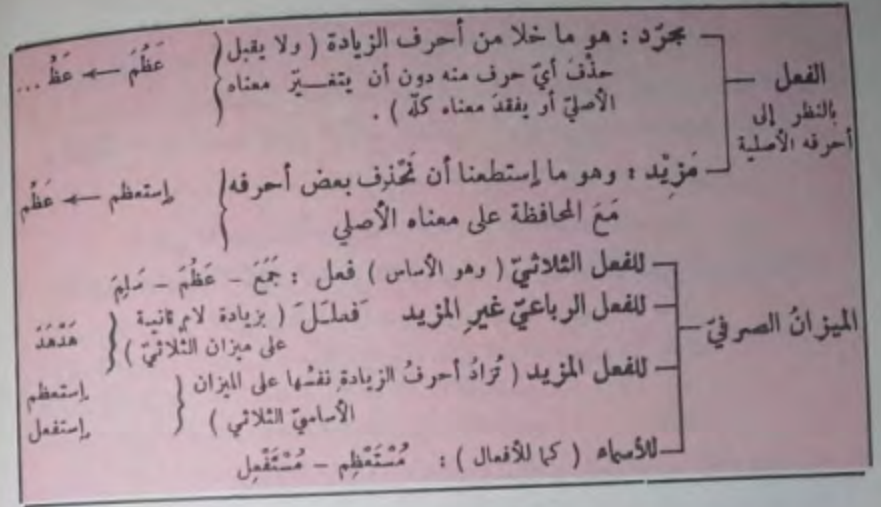 الفعل
بالنظر إلى
أحرفه الأصلية
مجرّد : هو ما خلا من أحرف الزيادة ( ولا يقبل
حذفَ أيّ حرف منه دون أن يتغـــيّر معناه
الأصليّ أو يفقدَ معناه كلّه ) .
عَظُمَ ← عَظُ ...
مَزيْد : وهو ما إستطعنا أن نَحْذِف بعض أحرفه
مَعَ المحافظة على معناه الأصلي
إستعظم ← عَظُم
الميزانُ الصرفيّ
للفعل الثلاثيّ ( وهو الأساس ) فعل : جَمَعَ – عَظُمَ – سَلِمَ
للفعل الرباعيّ غيرِ المزيد فَعـلـَـلَ ( بزيادة لامٍ ثانية
على ميزان الثلاثيّ )
هَدْهَدَ
للفعل المزيد ( تُزادُ أحرفُ الزيادة نفسُها على الميزان
الأساسيّ الثلاثي )
إستعظم
إستفعل
للأسماء ( كما للأفعال ) : مُسْتَعْظِم – مُسْتَفْعِل